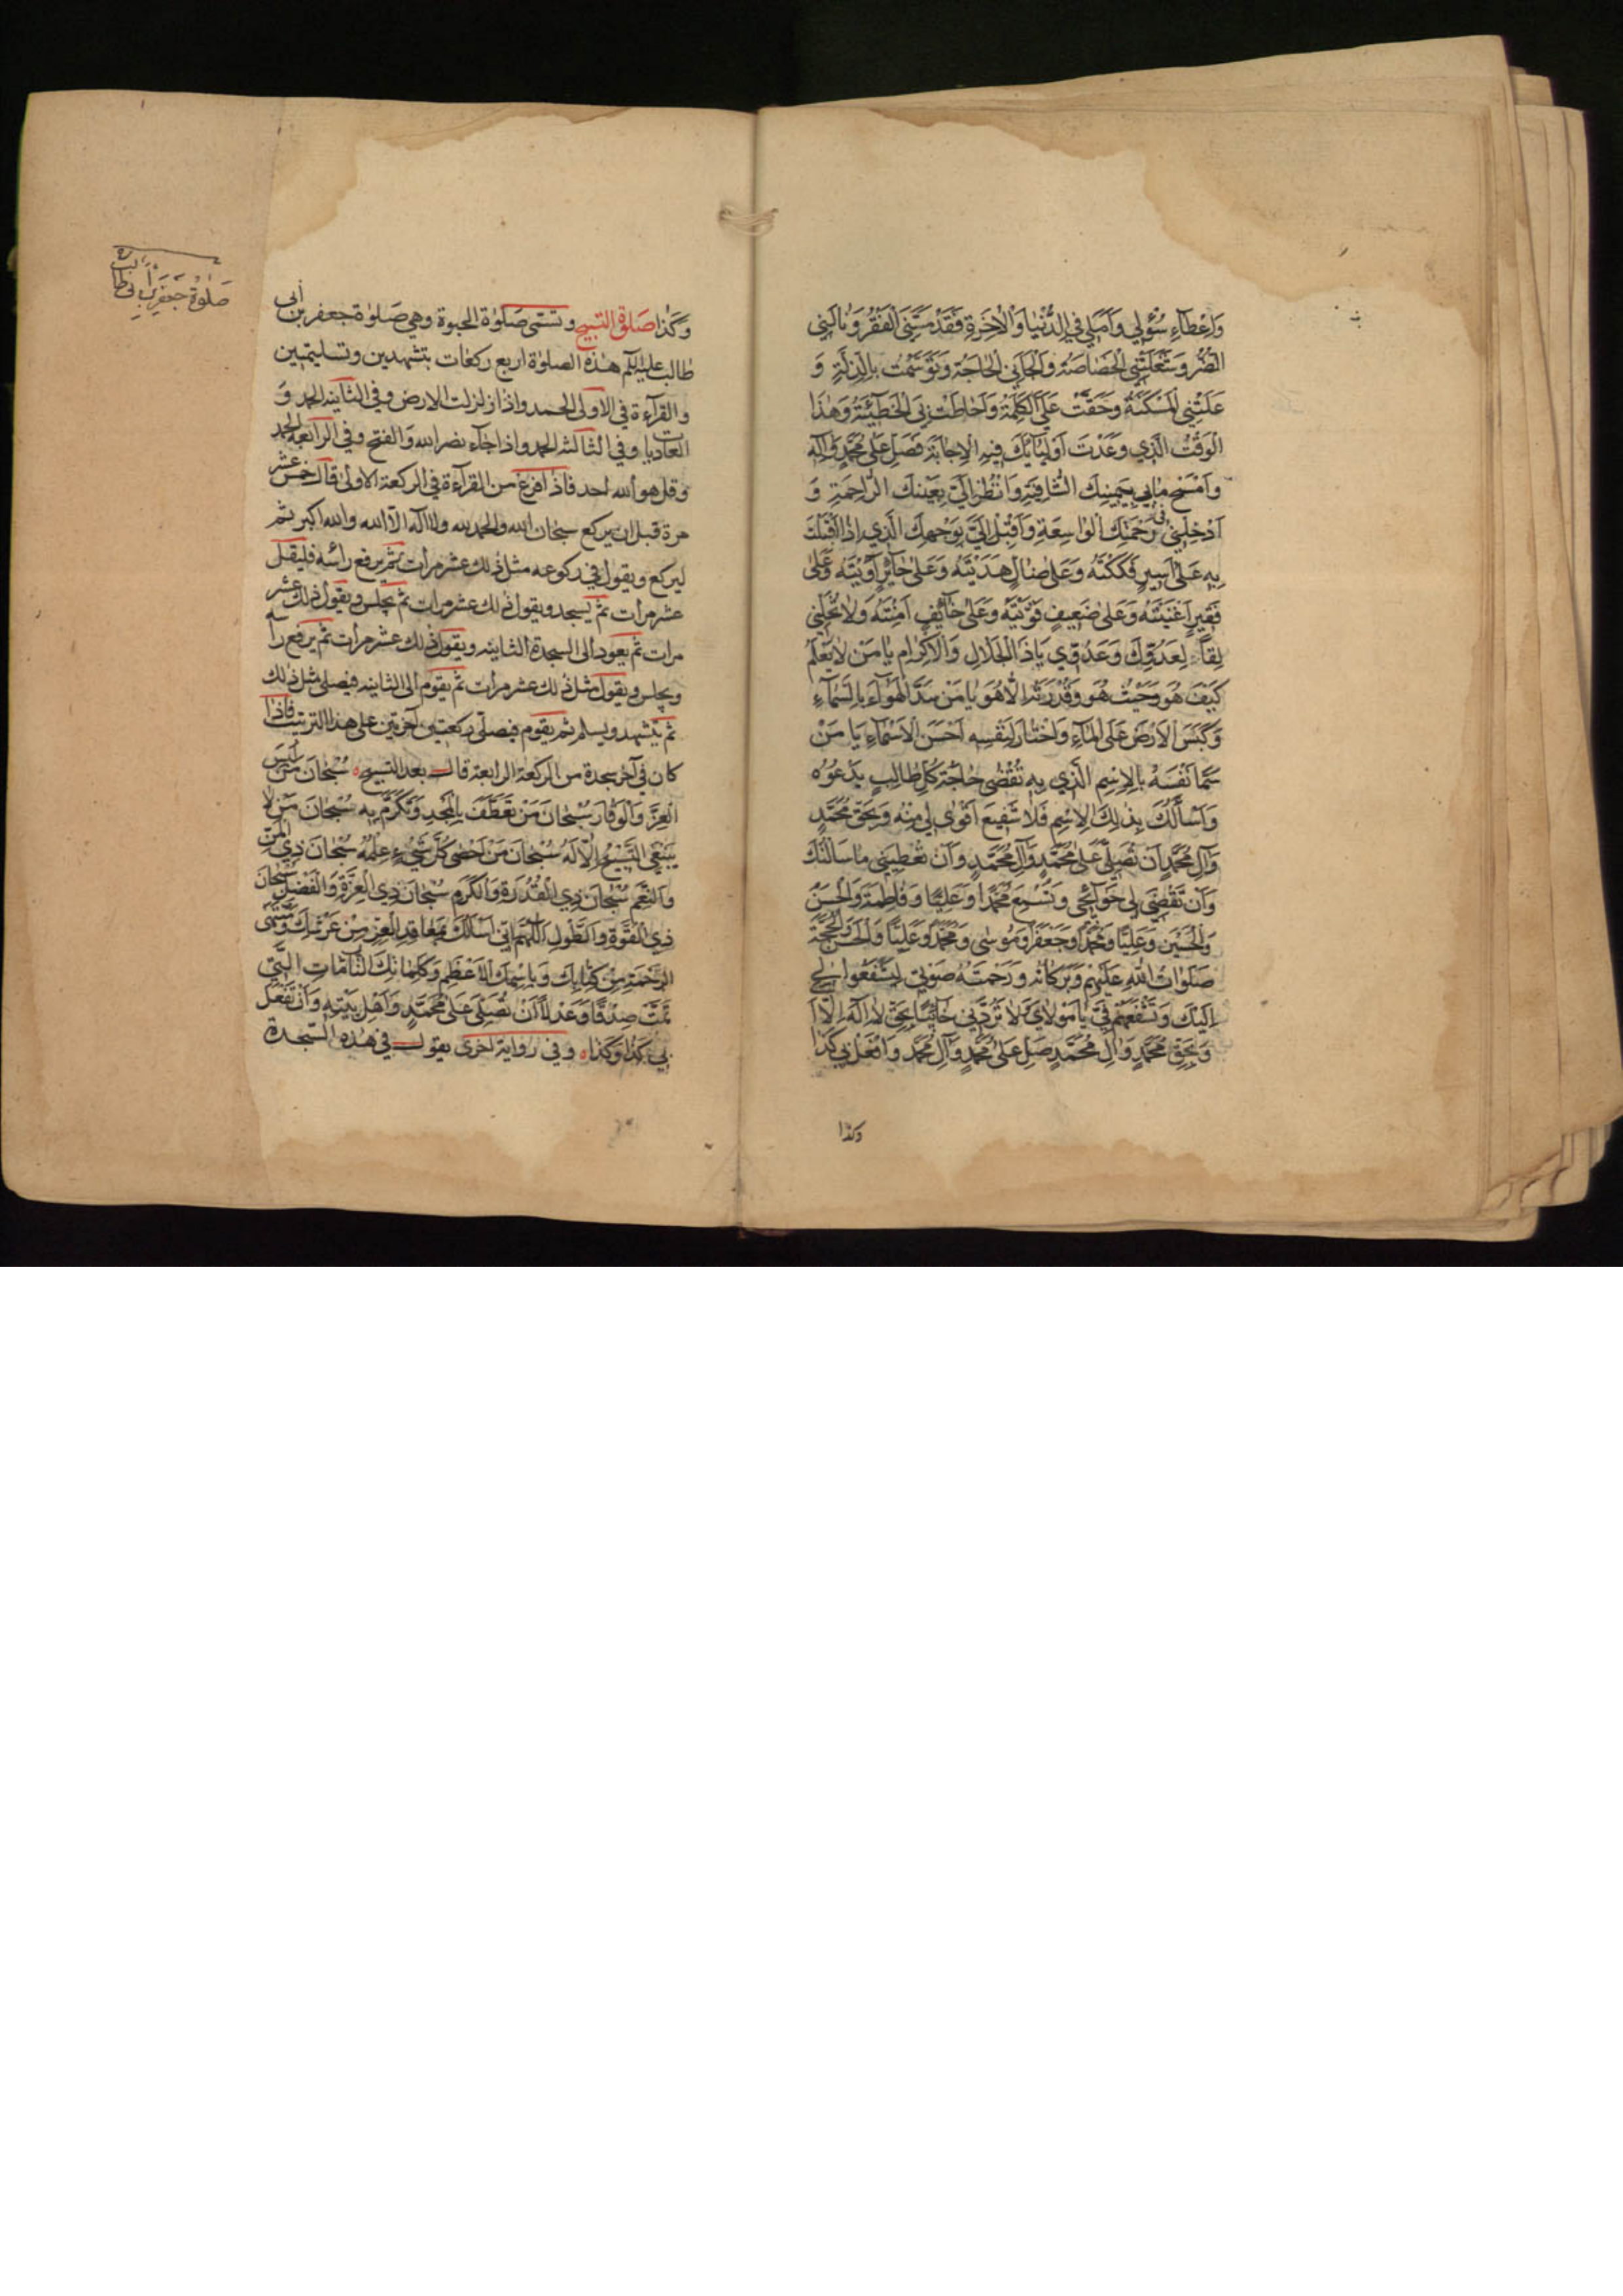 وَاِعْطَآءِ سُؤْلِي وَاَمَلِي فِي الدُّنْيَا وَالْاٰخِرَةِ فَقَدْ مَسَّنِيَ الْفَقْرُ وَنٰالَنِي
الضُّرُّ وَشَغَلَتْنِي الْخَصٰاصَةُ وَاَلْجَأَتْنِي الْحٰاجَةُ وَتَوَسَّمْتُ بِالذِّلَّةِ وَ
غَلَبَتْنِي الْمَسْكَنَةُ وَحَقَّتْ عَلَيَّ الْكَلِمَةُ وَاَحٰاطَتْ بِيَ الْخَطِيْئَةُ وَهٰذَا
الْوَقْتُ الَّذِي وَعَدْتَ اَوْلِيٰآئَكَ فِيهِ الْاِجٰابَةَ فَصَلِّ عَلٰى مُحَمَّدٍ وَاٰلِهِ
وَامْسَحْ مٰا بِي بِيَمِينِكَ الشّٰافِيَةِ وَانْظُرْ اِلَيَّ بِعَيْنِكَ الرّٰاحِمَةِ وَ
اَدْخِلْنِي فِي رَحْمَتِكَ الْوٰاسِعَةِ وَاَقْبِلْ اِلَيَّ بِوَجْهِكَ الَّذِي اِذٰا اَقْبَلْتَ
بِهِ عَلٰى اَسِيرٍ فَكَكْتَهُ وَعَلٰى ضٰالٍّ هَدَيْتَهُ وَعَلٰى حٰآئِرٍ اٰوَيْتَهُ وَعَلٰى
فَقِيرٍ اَغْنَيْتَهُ وَعَلٰى ضَعِيفٍ قَوَّيْتَهُ وَعَلٰى خٰآئِفٍ اٰمَنْتَهُ وَلٰا تُخَلِّنِي
لِقٰآءً لِعَدُوِّكَ وَعَدُوِّي يٰا ذَا الْجَلٰالِ وَالْاِكْرٰامِ يٰا مَنْ لٰا يَعْلَمُ
كَيْفَ هُوَ وَحَيْثُ هُوَ وَقُدْرَتَهُ اِلّٰا هُوَ يٰا مَنْ سَدَّ الْهَوٰآءَ بِالسَّمٰآءِ
وَكَبَسَ الْاَرْضَ عَلَى الْمٰآءِ وَاخْتٰارَ لِنَفْسِهِ اَحْسَنَ الْاَسْمٰآءِ يٰا مَنْ
سَمّٰا نَفْسَهُ بِالْاِسْمِ الَّذِي بِهِ تُقْضٰى حٰاجَةُ كُلِّ طٰالِبٍ يَدْعُوهُ
وَاَسْأَلُكَ بِذٰلِكَ الْاِسْمِ فَلٰا شَفِيعَ اَقْوٰى لِي مِنْهُ وَبِحَقِّ مُحَمَّدٍ
وَاٰلِ مُحَمَّدٍ اَنْ تُصَلِّيَ عَلٰى مُحَمَّدٍ وَاٰلِ مُحَمَّدٍ وَاَنْ تُعْطِيَنِي مٰا سَاَلْتُكَ
وَاَنْ تَقْضِيَ لِي حَوٰآئِجِي وَتُسْمِعَ مُحَمَّدًا وَعَلِيًّا وَفٰاطِمَةَ وَالْحَسَنَ
وَالْحُسَيْنَ وَعَلِيًّا وَمُحَمَّدًا وَجَعْفَرًا وَمُوسٰى وَمُحَمَّدًا وَعَلِيًّا وَالْحَسَنَ وَالْحُجَّةَ
صَلَوٰاتُ اللّٰهِ عَلَيْهِمْ وَبَرَكٰاتُهُ وَرَحْمَتُهُ صَوْتِي لِيَشْفَعُوا لِي
اِلَيْكَ وَتُشَفِّعَهُمْ فِيَّ يٰا مَوْلٰايَ وَلٰا تَرُدَّنِي خٰائِبًا بِحَقِّ لٰا اِلٰهَ اِلّٰا اَ
وَبِحَقِّ مُحَمَّدٍ وَاٰلِ مُحَمَّدٍ صَلِّ عَلٰى مُحَمَّدٍ وَاٰلِ مُحَمَّدٍ وَافْعَلْ بِي كَذٰا
وكذا
صَلٰوةُ جَعْفَرِ بْنِ اَبِي طَالِبٍ
وَكَذٰا صَلٰوةُ التسبيح وتسمى صَلٰوة الحبوة وهي صَلوٰة جعفر بن أبي
طالب عليه السلم هذه الصلوٰة اربع ركعات بتشهدين وتسليمتين
والقرآءة في الاولى الحمد واذا زلزلت الارض وفي الثانيه الحمد وَ
العاديات وفي الثالثه الحمد واذا جآء نصر الله وَالفتح وفي الرابعة الحمد
وقل هو الله احد فاذا افرغ من القرآءة في الركعة الاولىٰ قال خمس عشر
مرة قبل ان يركع سبحان الله والحمد لله ولا اله الّا الله والله اكبر ثم
ليركع ويقول في ركوعه مثل ذلك عشر مرات ثم يرفع رأسه فليقل
عشر مرات ثم يسجد ويقول ذلك عشر مرات ثم يجلس ويقول ذلك عشر
مرات ثم يعود الى السجدة الثانيه ويقول ذلك عشر مرات ثم يرفع رأسه
ويجلس ويقول مثل ذلك عشر مرات ثم يقوم الى الثانيه فيصلي مثل ذلك
ثم يتشهد ويسلم ثم يقوم فيصلّي ركعتين آخرتين على هذا الترتيب فاذا
كان في آخر سجدة من الركعة الرابعة قال بعد التسبيح سُبْحٰانَ مَنْ لَبِسَ
الْعِزَّ وَالْوَقٰارَ سُبْحٰانَ مَنْ تَعَطَّفَ بِالْمَجْدِ وَتَكَرَّمَ بِهِ سُبْحٰانَ مَنْ لٰا
يَنْبَغِي التَّسْبِيحُ اِلّٰا لَهُ سُبْحٰانَ مَنْ اَحْصٰى كُلَّ شَيْءٍ عِلْمُهُ سُبْحٰانَ ذِي الْمَنِّ
وَالنِّعَمِ سُبْحٰانَ ذِي الْقُدْرَةِ وَالْكَرَمِ سُبْحٰانَ ذِي الْعِزَّةِ وَالْفَضْلِ سُبْحٰانَ
ذِي الْقُوَّةِ وَالطَّوْلِ اَللّٰهُمَّ اِنِّي اَسْاَلُكَ بِمَعٰاقِدِ الْعِزِّ مِنْ عَرْشِكَ وَمُنْتَهَى
الرَّحْمَةِ مِنْ كِتٰابِكَ وَبِاسْمِكَ الْاَعْظَمِ وَكَلِمٰاتِكَ التّٰآمّٰاتِ الَّتِي
تَمَّتْ صِدْقًا وَعَدْلًا اَنْ تُصَلِّيَ عَلٰى مُحَمَّدٍ وَاَهْلِ بَيْتِهِ وَاَنْ تَفْعَلَ
بِي كَذٰا وَكَذٰا وفي رواية اخرى يقول في هٰذه السّجدة